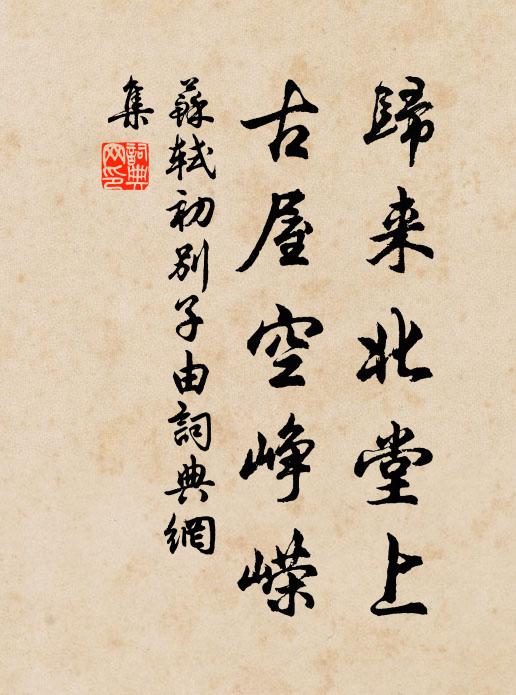 歸来北堂上
古屋空峥嶸
蘇軾初别子由詞典網
集
詞典
网印